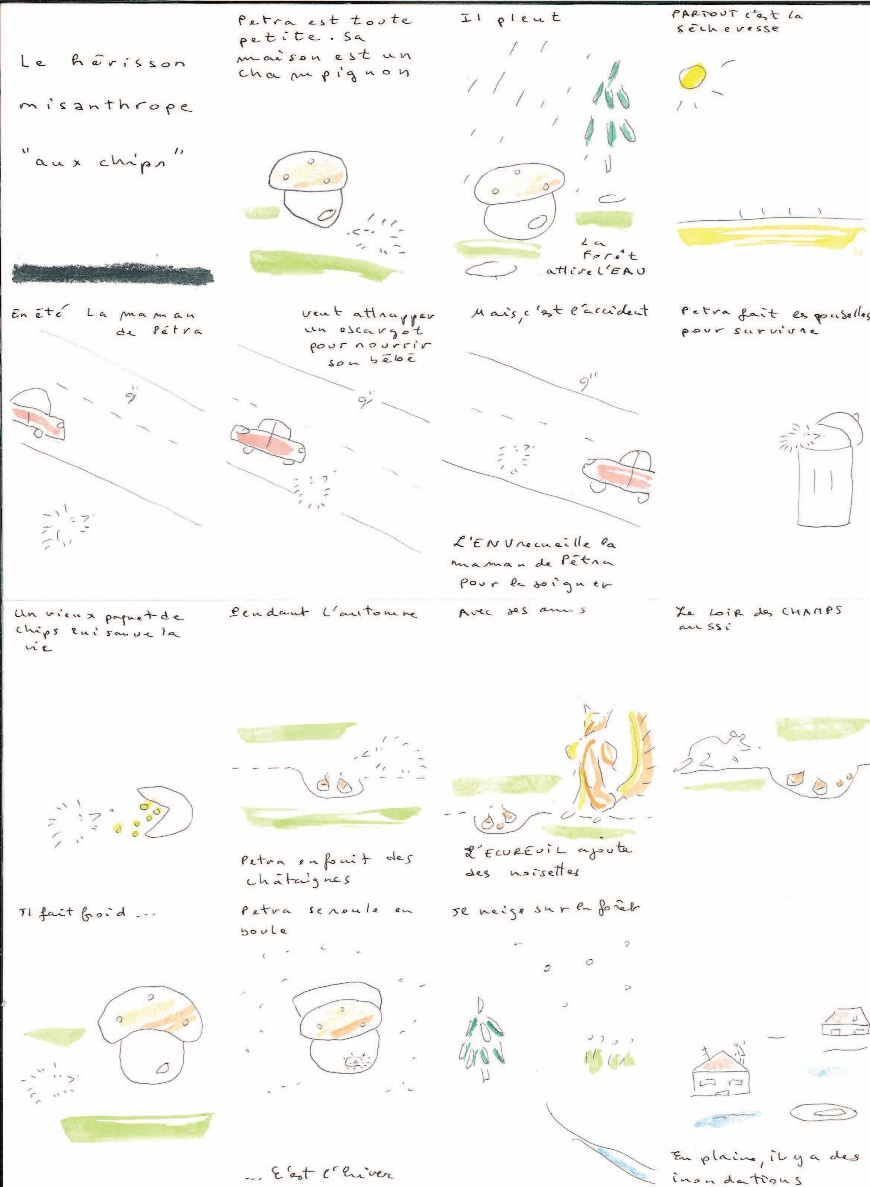 Le hérisson
misanthrope
"aux chips"
Petra est toute
petite. Sa
maison est un
champignon
Il pleut
La
Forêt
attire l'EAU
PARTOUT c'est la
sécheresse
En été La maman
de Pétra
veut attrapper
un escargot
pour nourrir
son bébé
Mais, c'est l'accident
L'ENV recueille la
maman de Pétra
pour la soigner
Petra fait es poubelles
pour survivre
Un vieux paquet de
chips lui sauve la
vie
Pendant l'automne
Petra enfouit des
châtaignes
Avec ses amis
L'ECUREUIL ajoute
des noisettes
Le LOIR des CHAMPS
aussi
Il fait froid ...
Petra se roule en
boule
... C'est l'hiver
Il neige sur la forêt
En plaine, il y a des
inondations